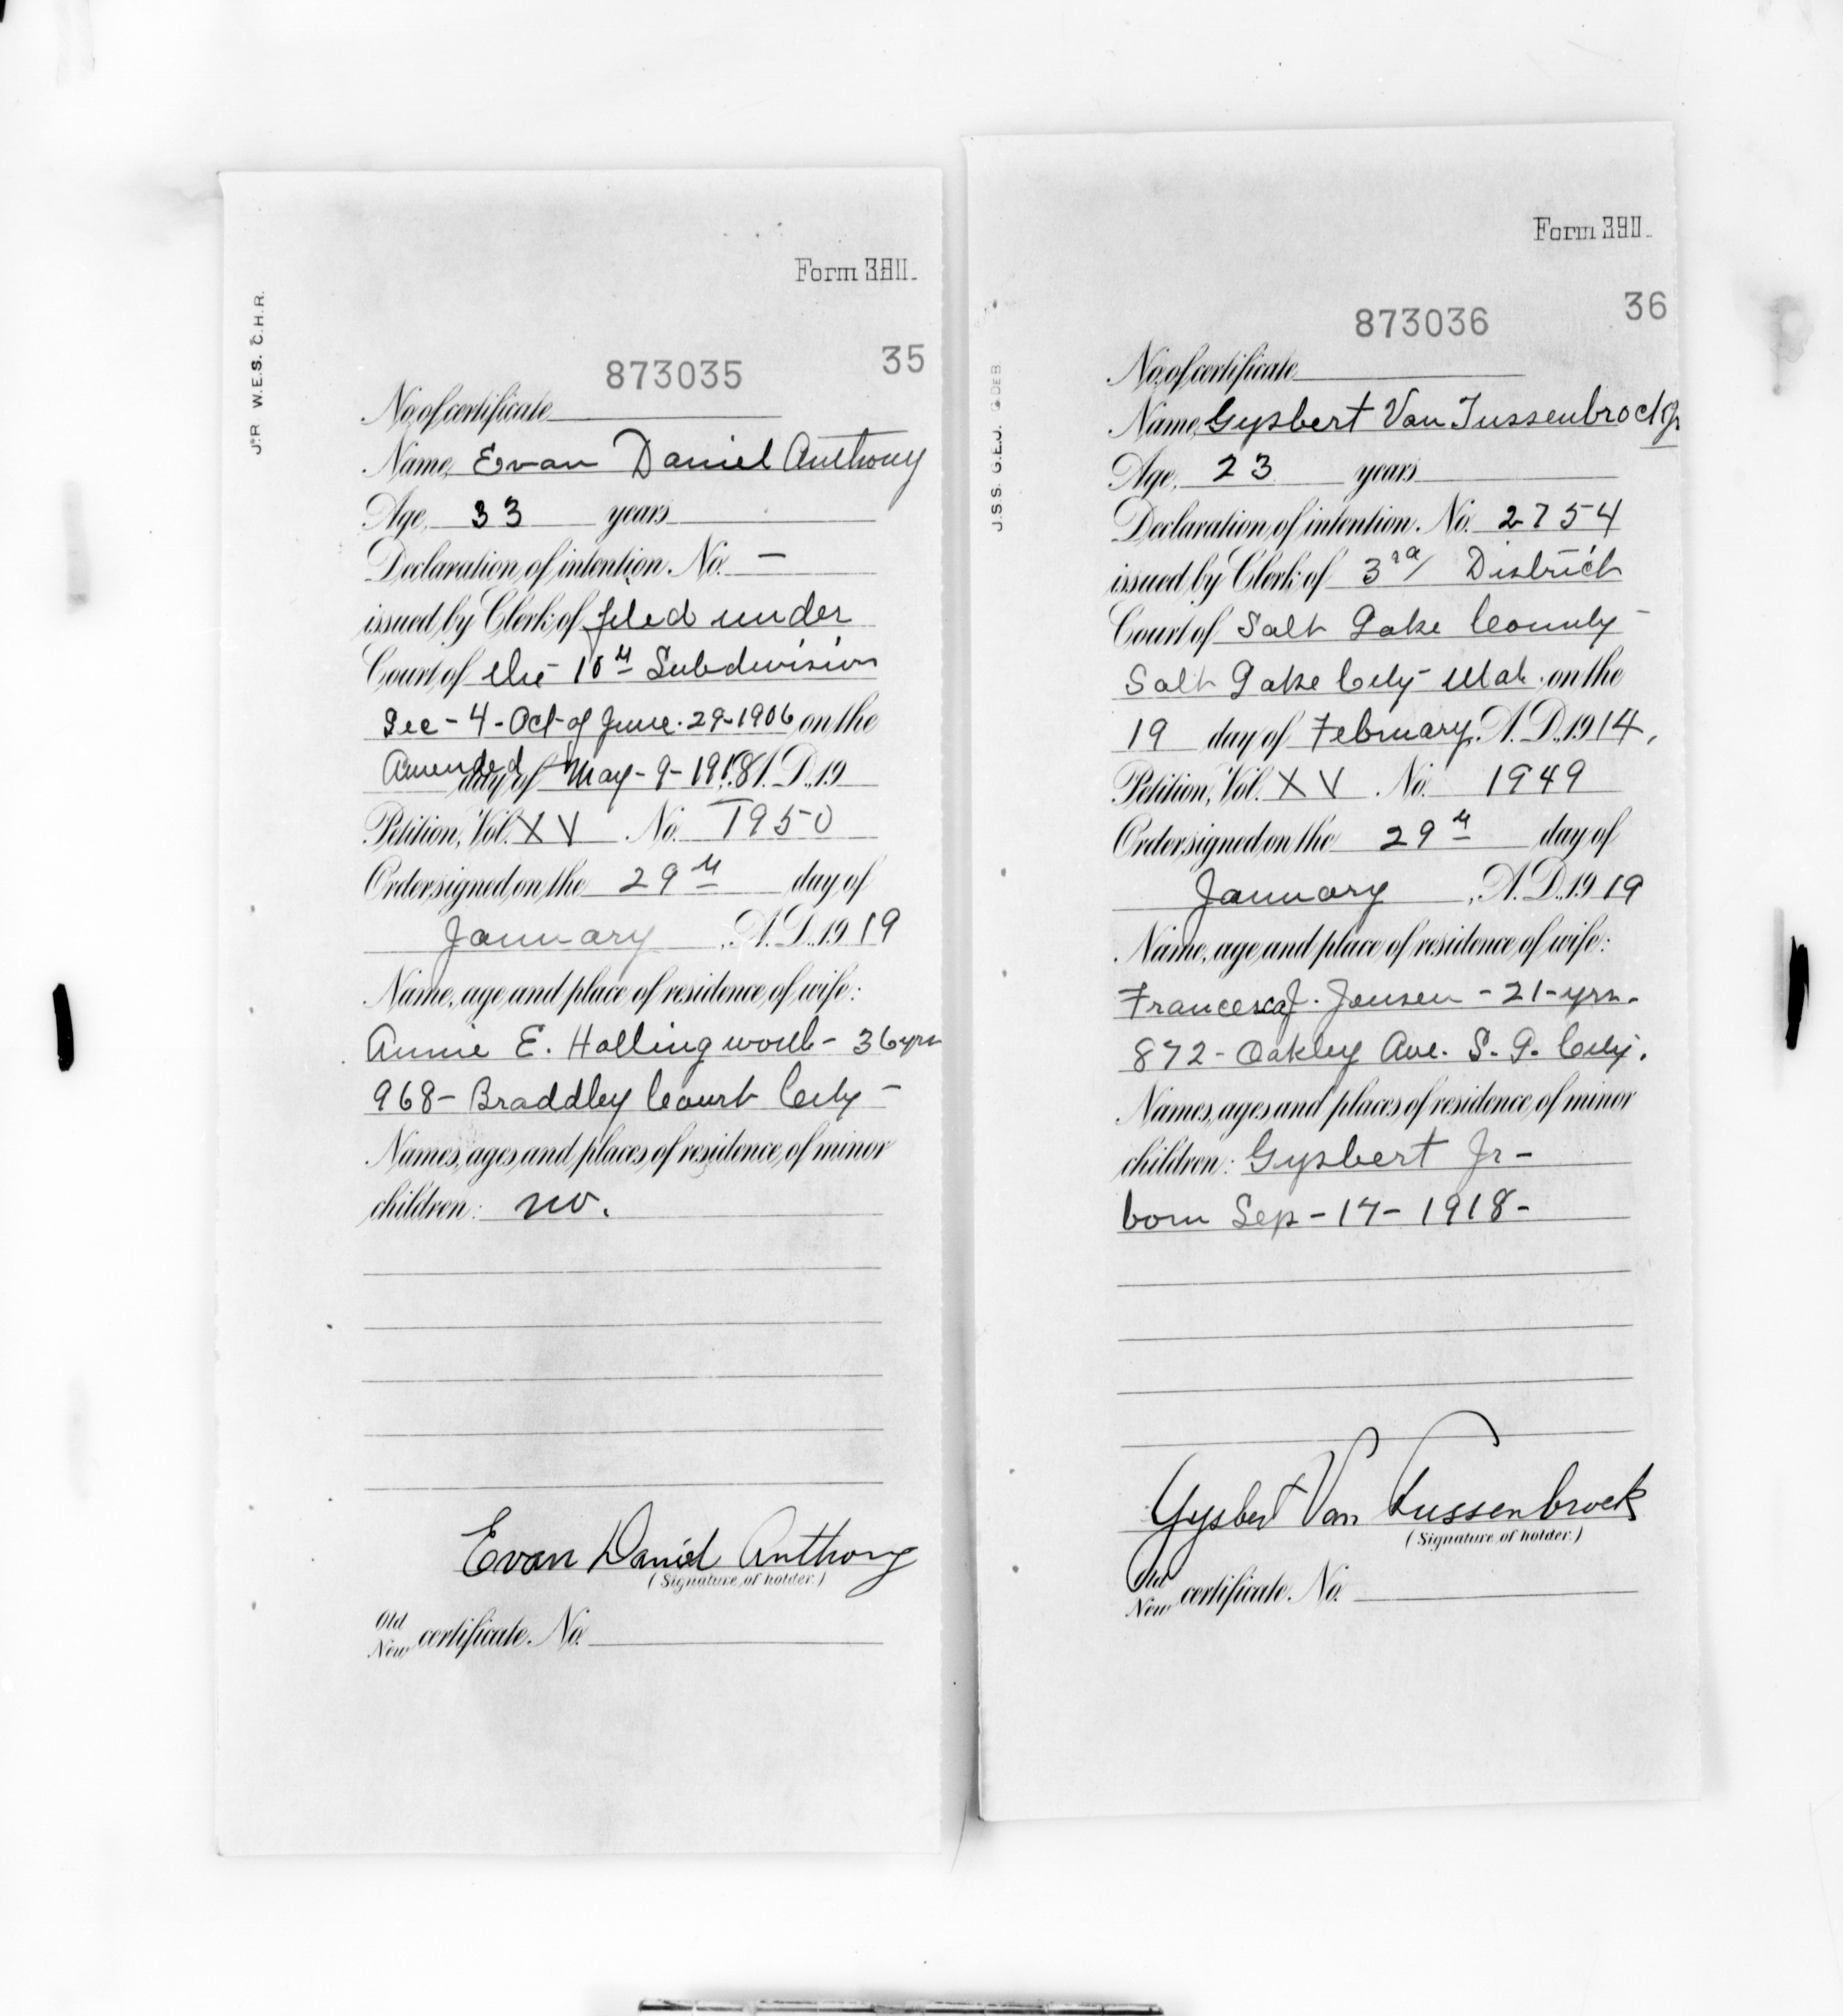 Form 3911.
J.R W.E.S. C.H.R.
873035 35
No. of certificate
Name, Evan Daniel Anthony
Age, 33 years
Declaration of intention, No. —
issued by Clerk of filed under
Court of the 10th Subdivision
Sec - 4 - Act of June - 29 - 1906 on the
Amended day of May - 9 - 1918 A. D., 19
Petition, Vol. XV No. 1950
Order signed on the 29th day of
January, A. D., 19 19
Name, age and place of residence of wife:
Annie E. Hollingworth - 36 yrs
968 - Braddley Court City -
Names, ages and places of residence of minor
children: no.
Evan Daniel Anthony
(Signature of holder.)
Old
New certificate, No.
Form 390.
J.S.S. G.E.J.
873036 36
No. of certificate
Name, Gysbert Van Tussenbrock Jr
Age, 23 years
Declaration of intention, No. 2754
issued by Clerk of 3rd District
Court of Salt Lake County -
Salt Lake City - Utah, on the
19 day of February, A. D., 1914,
Petition, Vol. XV No. 1949
Order signed on the 29th day of
January, A. D., 19 19
Name, age and place of residence of wife:
Francesca J. Jensen - 21 - yrs.
872 - Oakley Ave. S. L. City.
Names, ages and places of residence of minor
children: Gysbert Jr -
born Sep - 17 - 1918 -
Gysbert Van Tussenbroek
(Signature of holder.)
Old
New certificate, No.